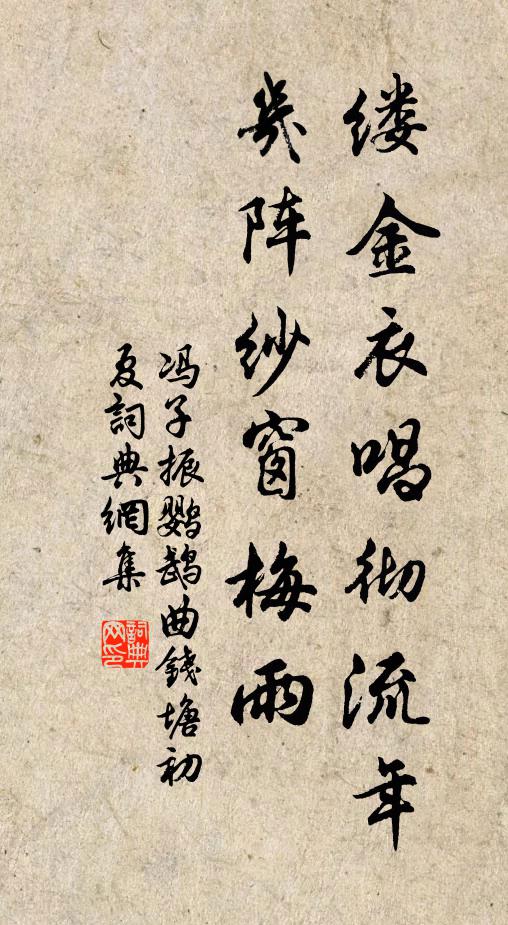 缕金衣唱彻流年
几阵纱窗梅雨
冯子振鹦鹉曲钱塘初
夏词典网集
詞典
网印